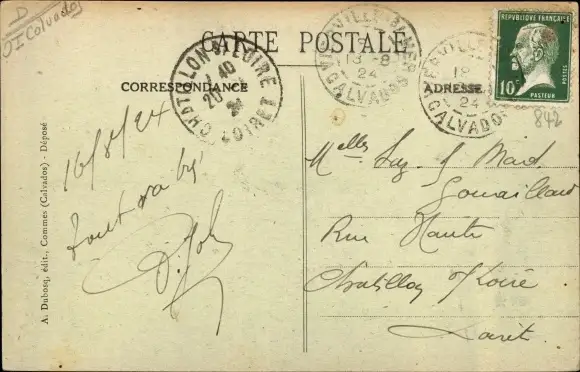 D
OI Calvados
CARTE POSTALE
CORRESPONDANCE
ADRESSE
CHATILLON S LOIRE
1 40
20
LOIRET
VIERVILLE
18 - 8
24
CALVADOS
VIERVILLE
18
24
CALVADOS
REPUBLIQUE FRANÇAISE
10c
POSTES
PASTEUR
842
16/8/24
Tout va
Melles
Rue Haute
Chatillon s/ Loire
Loiret
A. Dubosq, édit., Commes (Calvados) - Déposé